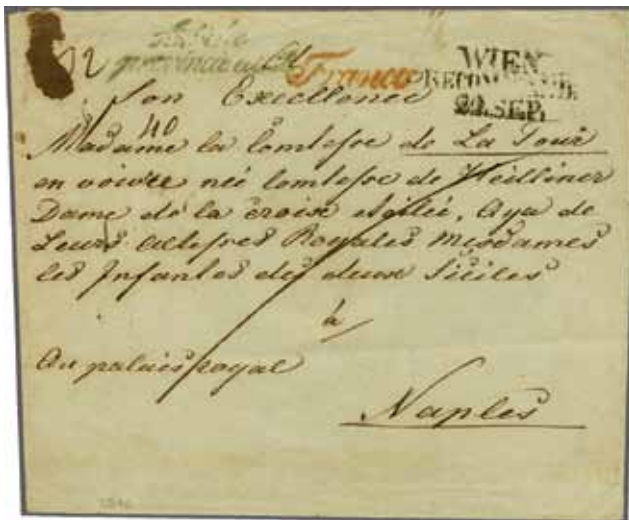 Franco
WIEN
RECOMMANDE
SEP.
Son Excellence
40
Madame la Comtesse de La Tour
en voivre née Comtesse de
Dame de la croix étoilée, Aya de
Leurs Altesses Royales Mesdames
les Infantes des deux Siciles
à
Au palais royal
Naples